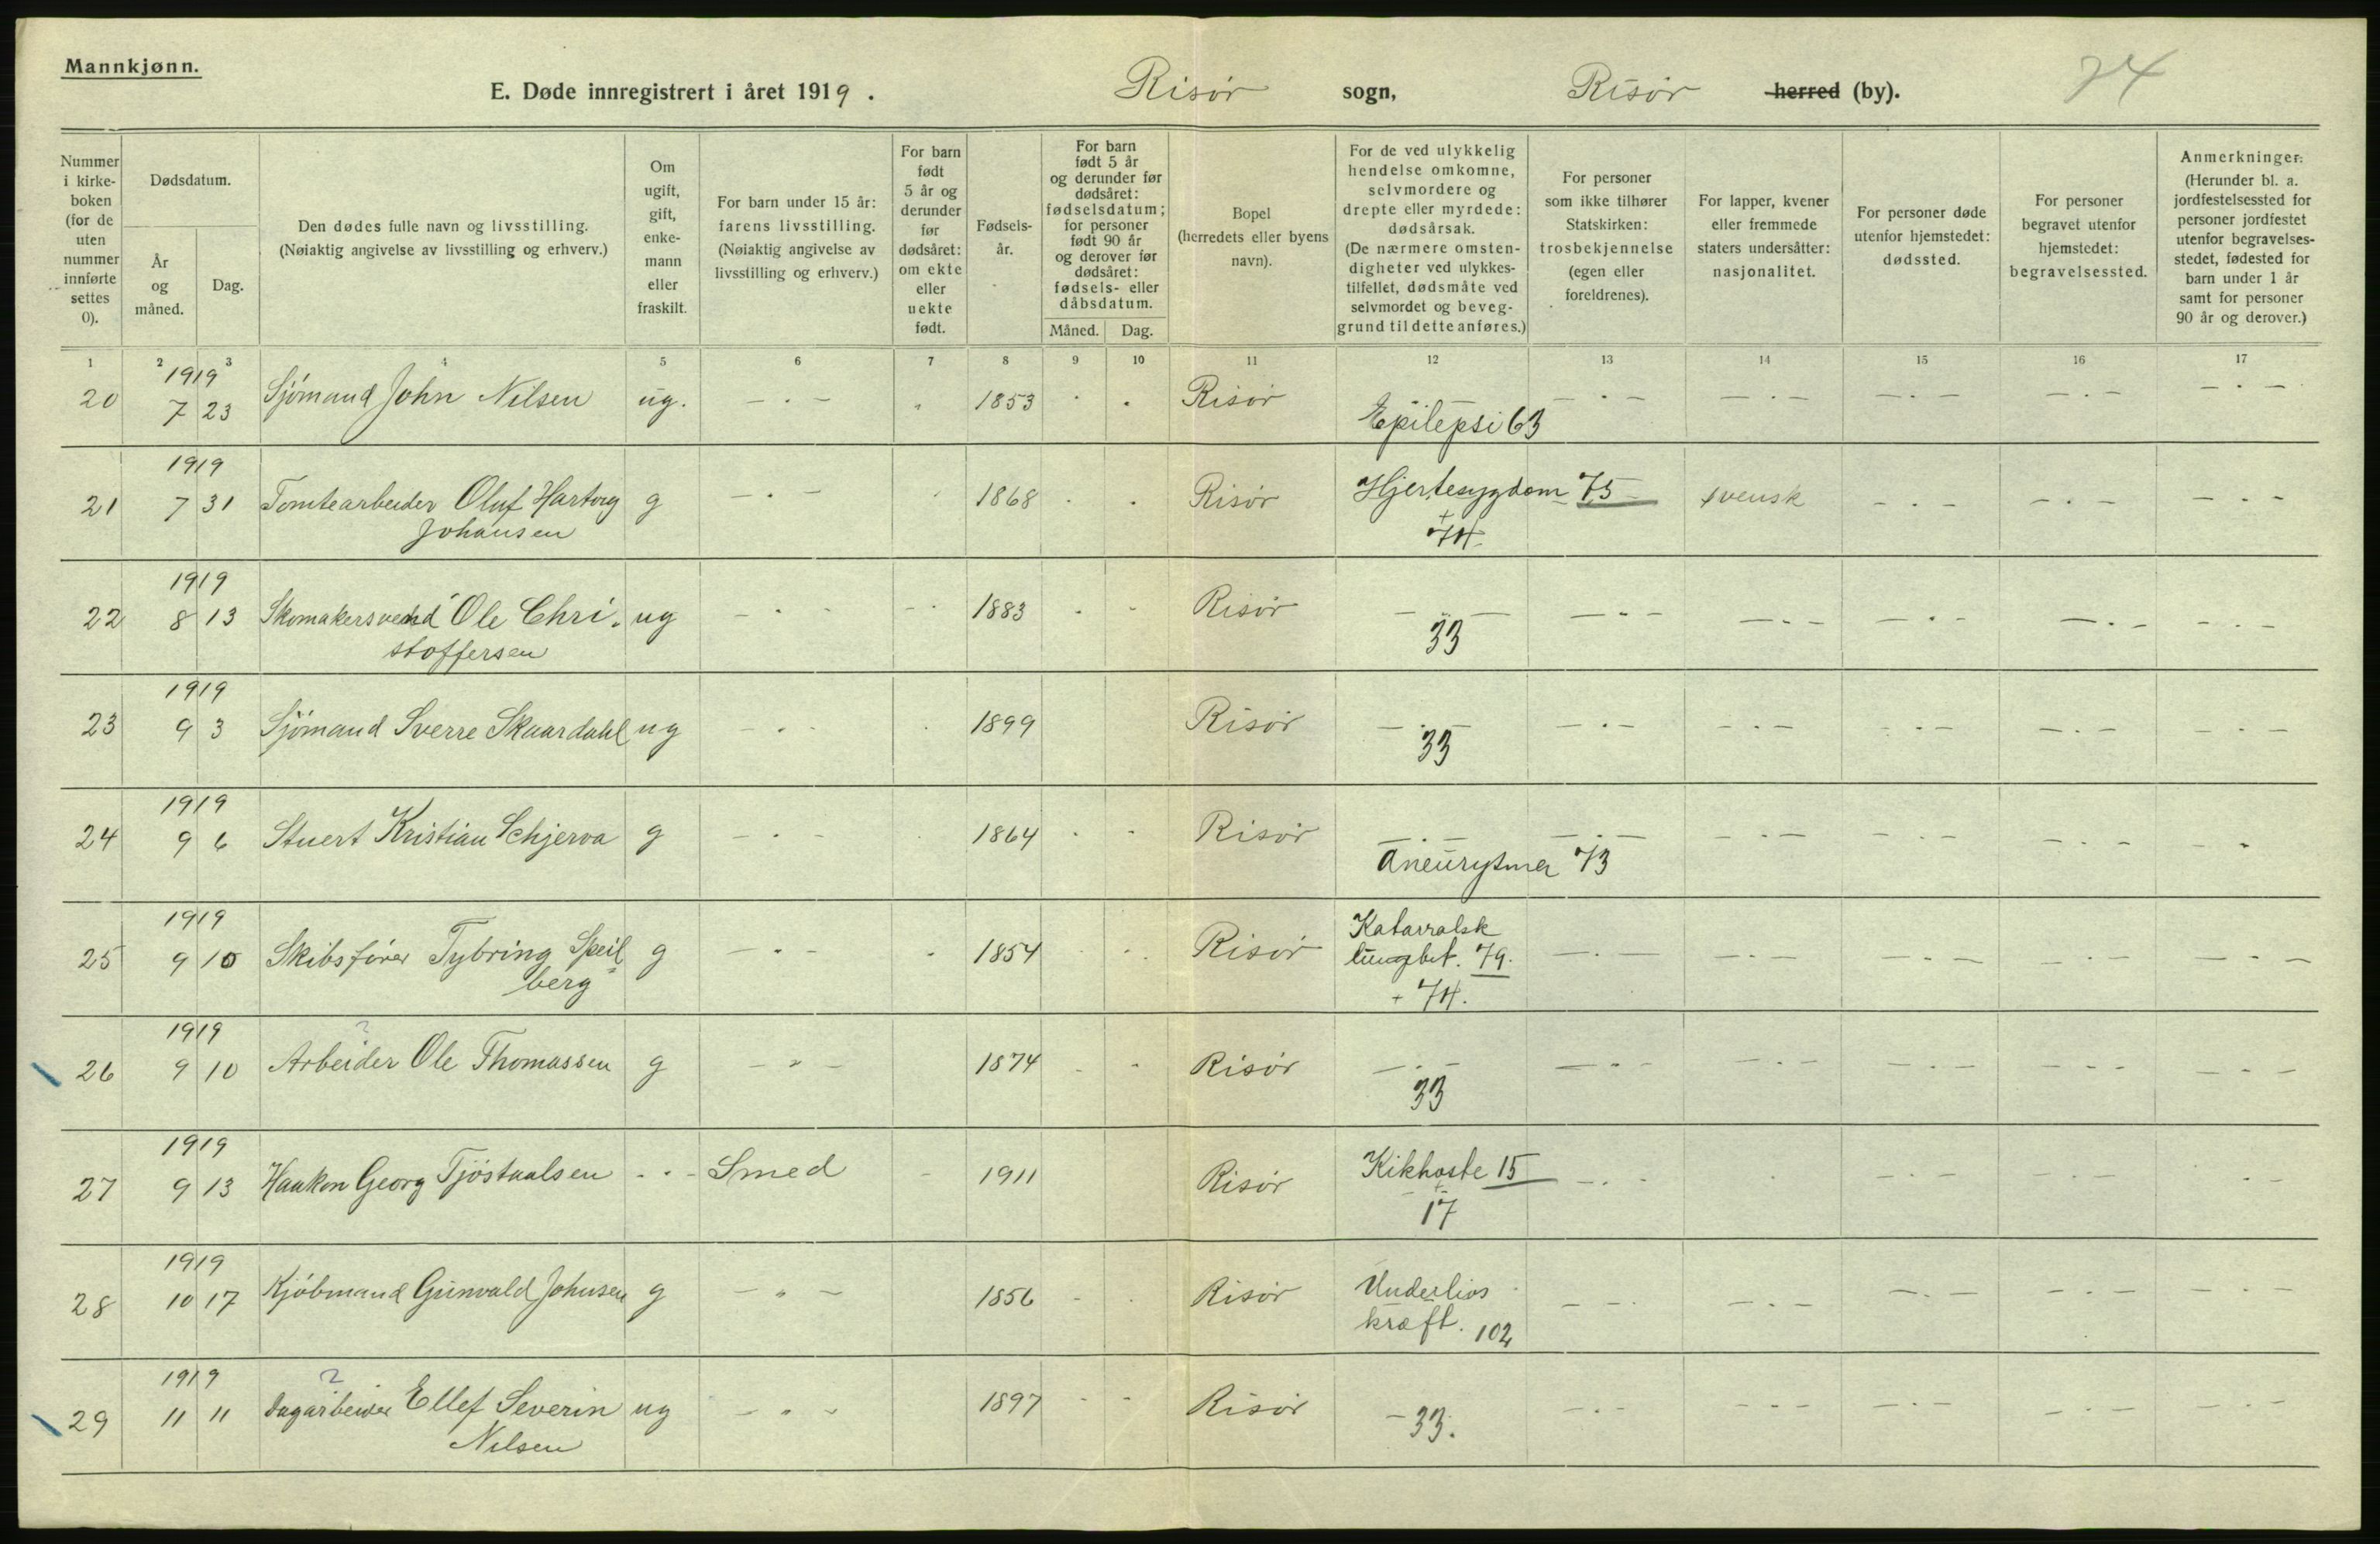 Mannkjønn.
E. Døde innregistrert i året 1919. Risør sogn, Risør herred (by). 74
Nummer i kirke-boken (for de uten nummer innførte settes 0).
Dødsdatum.
År og måned.
Dag.
Den dødes fulle navn og livsstilling. (Nøiaktig angivelse av livsstilling og erhverv.)
Om ugift, gift, enke-mann eller fraskilt.
For barn under 15 år: farens livsstilling. (Nøiaktig angivelse av livsstilling og erhverv.)
For barn født 5 år og derunder før dødsåret: om ekte eller uekte født.
Fødsels-år.
For barn født 5 år og derunder før dødsåret: fødselsdatum; for personer født 90 år og derover før dødsåret: fødsels- eller dåbsdatum.
Måned. Dag.
Bopel (herredets eller byens navn).
For de ved ulykkelig hendelse omkomne, selvmordere og drepte eller myrdede: dødsårsak. (De nærmere omsten-digheter ved ulykkes-tilfellet, dødsmåte ved selvmordet og beveg-grund til dette anføres.)
For personer som ikke tilhører Statskirken: trosbekjennelse (egen eller foreldrenes).
For lapper, kvener eller fremmede staters undersåtter: nasjonalitet.
For personer døde utenfor hjemstedet: dødssted.
For personer begravet utenfor hjemstedet: begravelsessted.
Anmerkninger: (Herunder bl. a. jordfestelsessted for personer jordfestet utenfor begravelses-stedet, fødested for barn under 1 år samt for personer 90 år og derover.)
1 2 3 4 5 6 7 8 9 10 11 12 13 14 15 16 17
1919
20 7 23 Sjömand John Nilsen ug. - . - 1853 Risør - . - - . - - . - - . - - . -
Epilepsi 63
1919
21 7 31 Tomtearbeider Oluf Hartvig g - . - 1868 Risør Hjertesygdom 75 svensk - . - - . - - . -
Johansen + 74.
1919
22 8 13 Skomakersvend Ole Chri- ug - . - 1883 Risør - . - - . - - . - - . - - . - - . -
stoffersen 33
1919
23 9 3 Sjömand Sverre Skaardahl ug - . - 1899 Risør - . - - . - - . - - . - - . - - . -
33
1919
24 9 6 Stuert Kristian Schjerva g - . - 1864 Risør - . - - . - - . - - . - - . -
Aneurysmer 73
1919
25 9 10 Skibsfører Tybring Speil g - . - 1854 Risør Katarralsk - . - - . - - . - - . - - . -
berg lungebet. 79.
+ 74.
1919 ?
26 9 10 Arbeider Ole Thomassen g - " - 1874 Risør - . - - . - - . - - . - - . - - . -
33
1919
27 9 13 Haakon Georg Tjöstaalsen - . - Smed 1911 Risør Kikhoste 15 - . -
+
17
1919
28 10 17 Kjöbmand Gunvald Johnsen g - " - 1856 Risør Underlivs - . - - . - - . - - . - - . -
kræft. 102
1919 ?
29 11 11 Dagarbeider Ellef Severin ug - " - 1897 Risør - 33. - . - - . - - . - - . - - . -
Nilsen